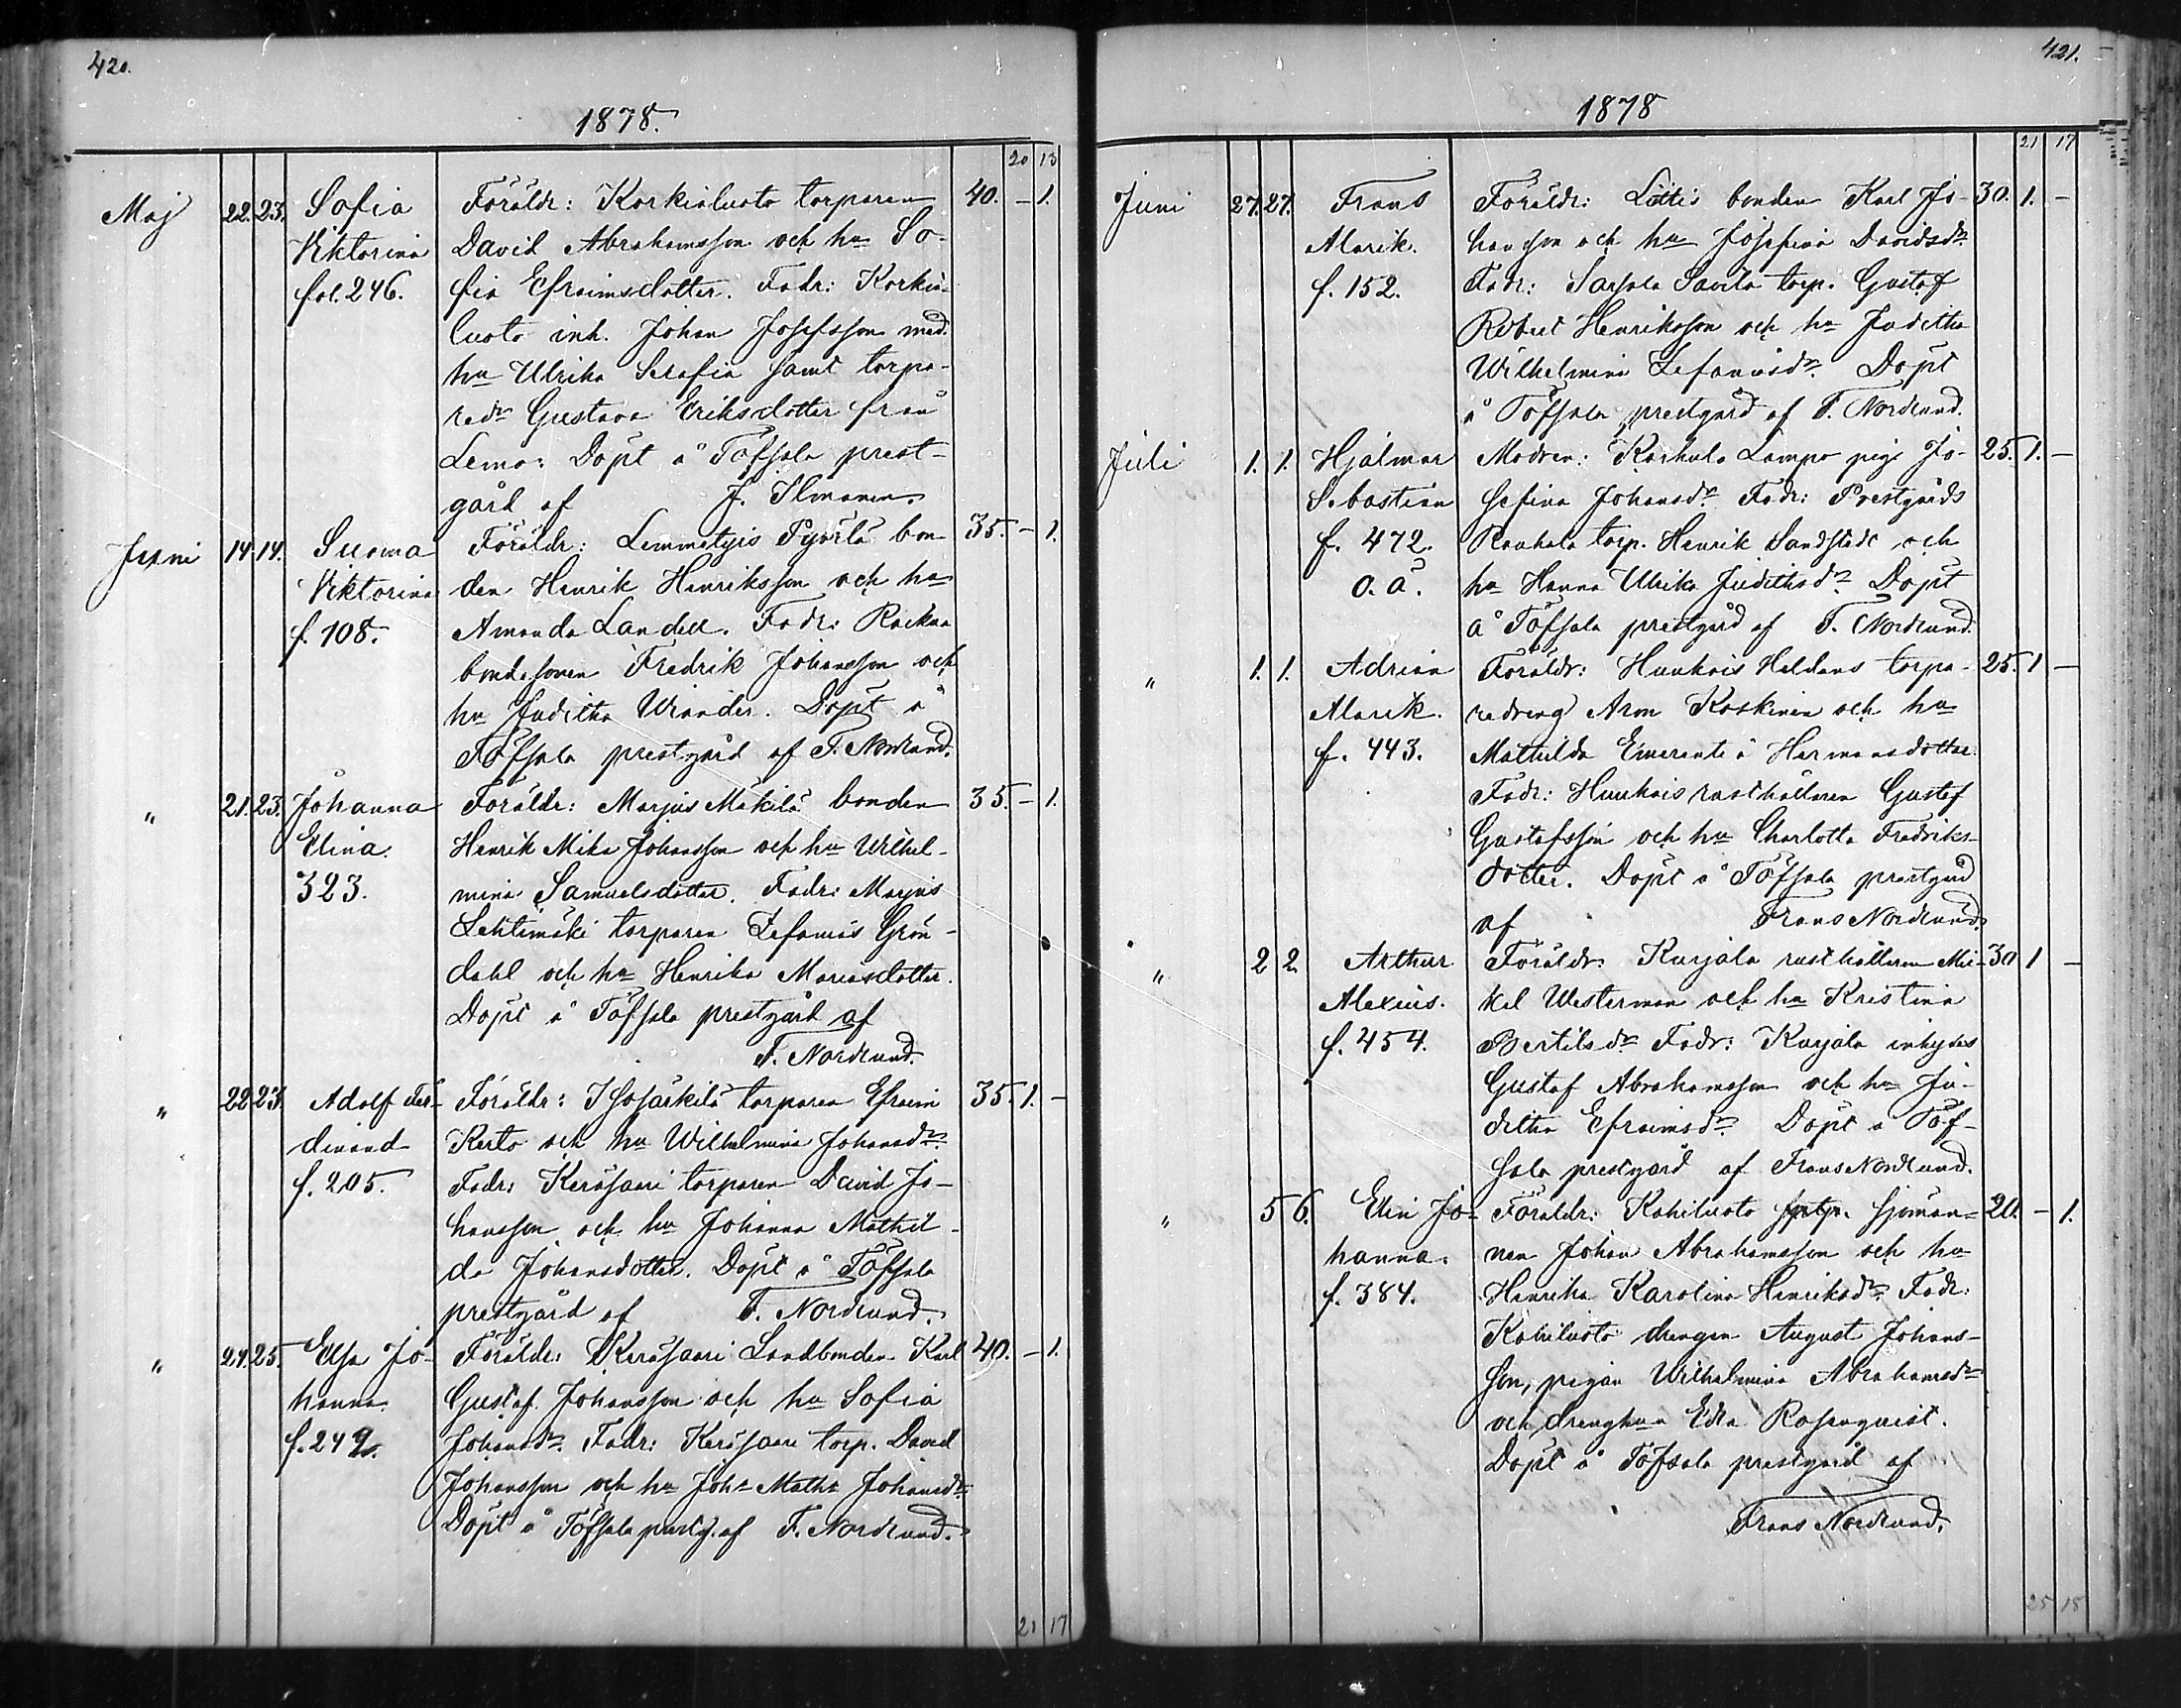 420.
1878.
20 13
Maj 22. 23. Sofia Föräldr: Korkialuoto torparen 40. - 1.
Viktorina David Abrahamsson och hu So-
fol. 246. fia Efraimsdotter. Fadr: Korkia-
luoto inh. Johan Josefsson med
hu Ulrika Serafia samt torpa-
redr Gustava Eriksdotter från
Lemo: Döpt å Töfsala prest-
gård af J. Ilmonen.
Juni 14 14. Suoma Föräldr: Lemmetyis Pyörlä bon- 35. - 1.
Viktorina den Henrik Henriksson och hu
f. 108. Amanda Landell. Fadr:
bondesonen Fredrik Johansson och
hu Juditha Winnder. Döpt å
Töfsala prestgård af F. Nordlund.
" 21. 23. Johanna Föräldr: Marjus Mäkilä bonden 35. - 1.
Elina. Henrik Mika Johansson och hu Wilhel-
323. mina Samuelsdotter. Fadr: Marjus
Lehtimäki torparen Zefanias Grön-
dahl och hu Henrika Mariasdotter.
Döpt å Töfsala prestgård af
F. Nordlund.
" 22 23. Adolf Fer- Föräldr: Isosärkilä torparen Efraim 35. 1. -
dinand Kerto och hu Wilhelmina Johansdr
f. 205. Fadr: Keräsaari torparen David Jo-
hansson och hu Johanna Mathil-
da Johansdotter. Döpt å Töfsala
prestgård af F. Nordlund.
" 24. 25. Elsa Jo- Föräldr: Keräsaari Landbonden Karl 40. - 1.
hanna. Gustaf Johansson och hu Sofia
f. 242. Johansdr. Fadr: Keräsaari torp. David
Johansson och hu Joha Matha Johansdr.
Döpt å Töfsala prestg. af F. Nordlund.
21 17
421.
1878
21 17
Juni 27. 27. Frans Föräldr: Löttis bonden Karl Jo- 30. 1. -
Alarik. hansson och hu Josefina Davidsdr
f. 152. Fadr: Särsala Savila torp. Gustaf
Robert Henriksson och hu Juditha
Wilhelmina Zefaniasdr. Döpt
å Töfsala prestgård af F. Nordlund.
Juli 1. 1. Hjalmar Modren: Karhula Lampo pig Jo- 25. 1. -
Sebastian sefina Johansdr. Fadr: Prestgårds
f. 472. Rauhala torp. Henrik Sandstedt och
o. ä. hu Hanna Ulrika Judithsdr. Döpt
å Töfsala prestgård af F. Nordlund.
" 1. 1. Adrian Föräldr: Haukois Heldans torpa- 25. 1 -
Alarik. redreng Aron Koskinen och hu
f. 443. Mathilda Emerentia Hermansdotter.
Fadr: Haukois rusthållaren Gustaf
Gustafsson och hu Charlotta Fredriks-
dotter. Döpt å Töfsala prestgård
af Frans Nordlund.
" 2 2. Arthur Föräldr: Kurjala rusthållaren Mi- 30 1 -
Alexius. kel Westerman och hu Kristina
f. 454. Bertilsdr. Fadr: Kurjala inhyses
Gustaf Abrahamsson och hu Ju-
ditha Efraimsdr. Döpt å Töf-
sala prestgård af Frans Nordlund.
" 5 6. Elin Jo- Föräldr: Kahiluoto sjöman- 20. - 1.
hanna. nen Johan Abrahamsson och hu
f. 384. Henrika Karolina Henriksdr. Fadr:
Kahiluoto drengen August Johans-
son, pigan Wilhelmina Abrahamsdr
och drenghun Edla Rosenqvist.
Döpt å Töfsala prestgård af
Frans Nordlund.
25 18